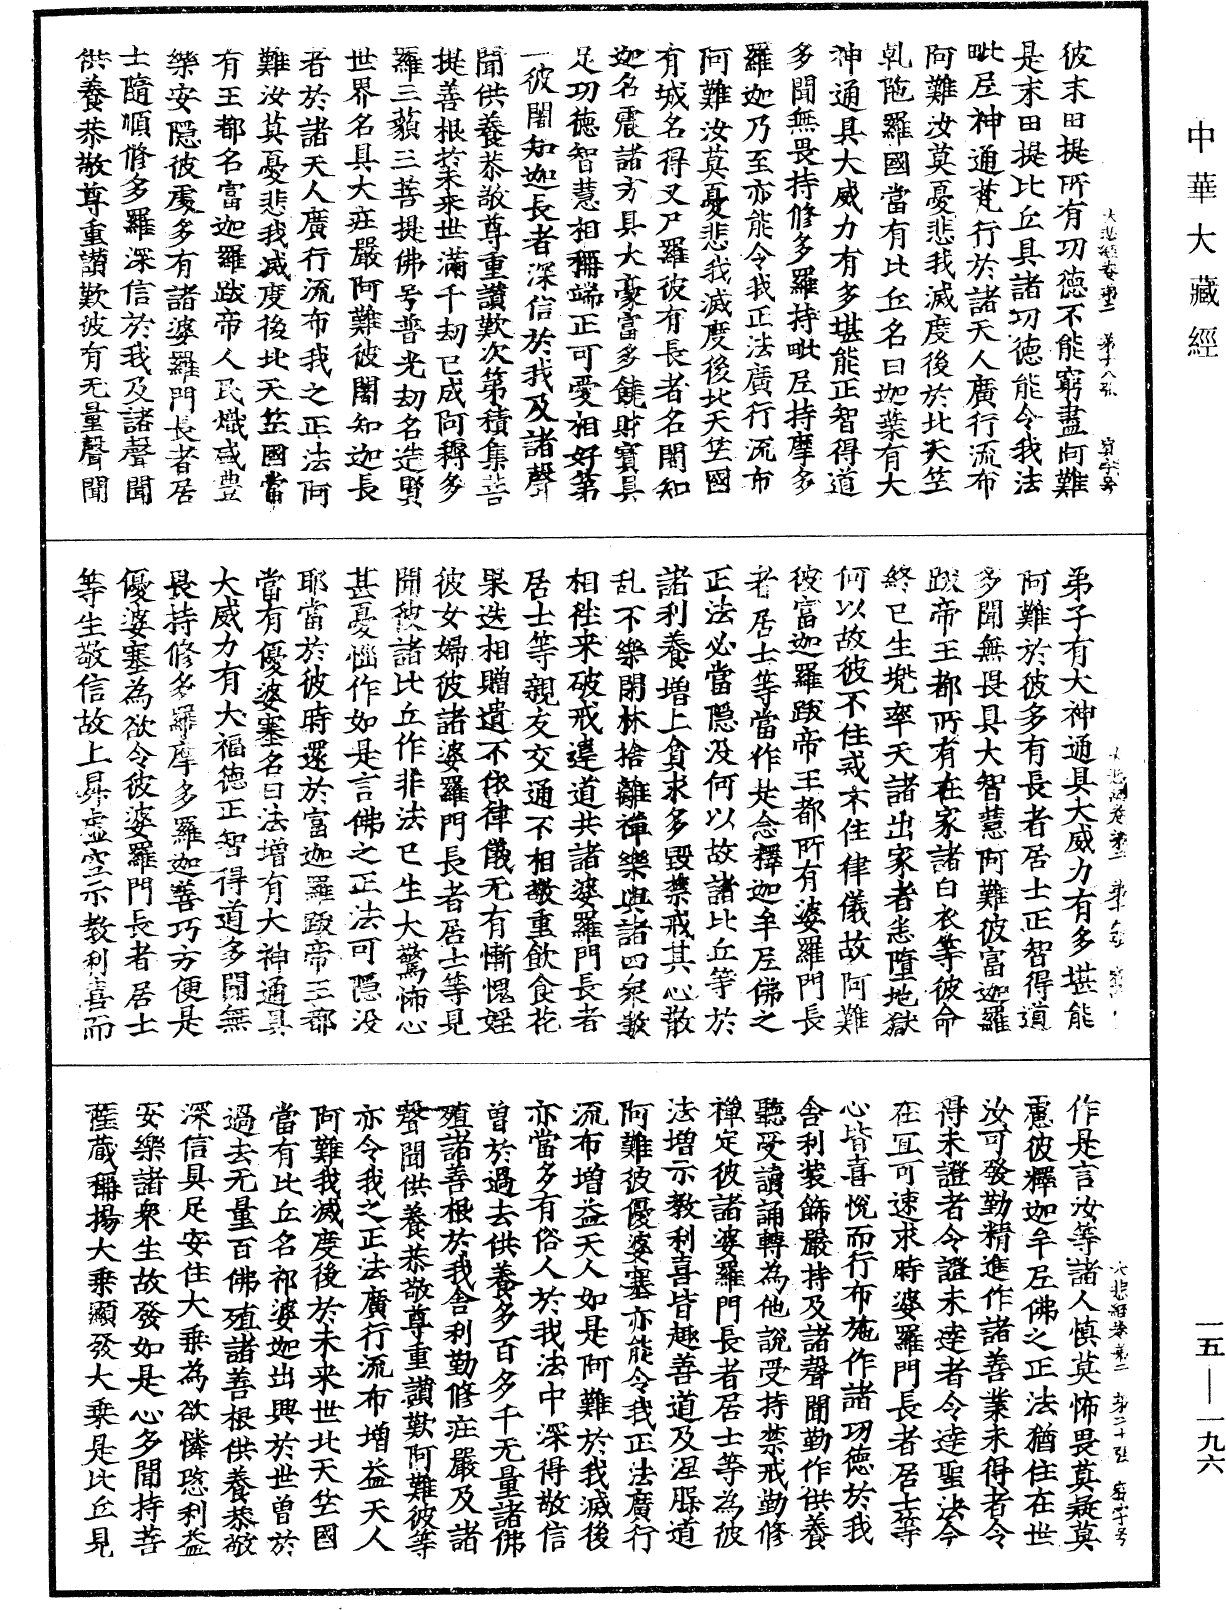 中華大藏經
彼末田提所有功德不能窮盡阿難
是末田提比丘具諸功德能令我法
毗尼神通梵行於諸天人廣行流布
阿難汝莫憂悲我滅度後於北天竺
乹陁羅國當有比丘名曰迦葉有大
神通具大威力有多堪能正智得道
多聞無畏持修多羅持毗尼持摩多
羅迦乃至亦能令我正法廣行流布
阿難汝莫憂悲我滅度後北天竺國
有城名得叉尸羅彼有長者名闍知
迦名震諸方具大豪富多饒財寶具
足功德智慧相稱端正可愛相好第
一彼闍知迦長者深信於我及諸聲
聞供養恭敬尊重讃歎次第積集菩
提善根於未來世滿千劫已成阿耨多
羅三藐三菩提佛号普光劫名造賢
世界名具大莊嚴阿難彼闍知迦長
者於諸天人廣行流布我之正法阿
難汝莫憂悲我滅度後北天竺國當
有王都名富迦羅跋帝人民熾盛豊
樂安隱彼處多有諸婆羅門長者居
士隨順修多羅深信於我及諸聲聞
供養恭敬尊重讃歎彼有无量聲聞
弟子有大神通具大威力有多堪能
阿難於彼多有長者居士正智得道
多聞無畏具大智慧阿難彼富迦羅
跋帝王都所有在家諸白衣等彼命
終已生兜率天諸出家者悉墮地獄
何以故彼不住戒不住律儀故阿難
彼富迦羅跋帝王都所有婆羅門長
者居士等當作是念釋迦牟尼佛之
正法必當隱没何以故諸比丘等於
諸利養增上貪求多毀禁戒其心散
乱不樂閑林捨離禪樂與諸四衆數
相往来破戒違道共諸婆羅門長者
居士等親友交通不相敬重飲食花
果迭相贈遺不依律儀无有慚愧婬
彼女婦彼諸婆羅門長者居士等見
聞彼諸比丘作非法已生大驚怖心
甚憂惱作如是言佛之正法可隱没
耶當於彼時還於富迦羅跋帝王都
當有優婆塞名曰法增有大神通具
大威力有大福德正智得道多聞無
畏持修多羅摩多羅迦善巧方便是
優婆塞為欲令彼婆羅門長者居士
等生敬信故上昇虛空示教利喜而
作是言汝等諸人慎莫怖畏莫疑莫
慮彼釋迦牟尼佛之正法猶住在世
汝可發勤精進作諸善業未得者令
得未證者令證未達者令達聖法今
在宜可速求時婆羅門長者居士等
心皆喜悅而行布施作諸功德於我
舍利裝飾嚴持及諸聲聞勤作供養
聽受讀誦轉為他說受持禁戒勤修
禪定彼諸婆羅門長者居士等為彼
法增示教利喜皆趣善道及涅槃道
阿難彼優婆塞亦能令我正法廣行
流布增益天人如是阿難於我滅後
亦當多有俗人於我法中深得敬信
曽於過去供養多百多千无量諸佛
殖諸善根於我舍利勤修莊嚴及諸
聲聞供養恭敬尊重讃歎阿難彼等
亦令我之正法廣行流布增益天人
阿難我滅度後於未来世北天竺國
當有比丘名祁婆迦出興於世曽於
過去无量百佛殖諸善根供養恭敬
深信具足安住大乗為欲憐愍利益
安樂諸衆生故發如是心多聞持菩
薩蔵稱揚大乗顯發大乗是比丘見
一五—一九六